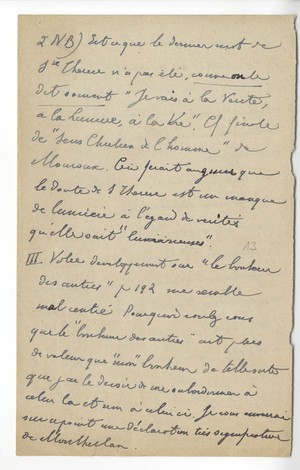 2 NB) Est ce que le dernier mot de
Ste Therese n'a pas été, comme on le
dit souvent "Je vais à la Verité,
à la lumiere, à la Vie". Cf finale
de "Sens Chretien de l'homme" de
Mouroux. Ceci ferait que
le doute de S Therese est un manque
de lumiere à l'egard de verités
qu'elle sait "lumineuses".
13
III Votre developpement sur "le bonheur
des autres" p 192 me semble
mal centré Pourquoi voulez vous
que le "bonheur des autres" ait plus
de valeur que "mon" bonheur de telle sorte
que j'ai le devoir de me subordonner à
celui là et non à celui ci. Je vous enverrai
sur ce point une déclaration très suggestive
de Montherlan.